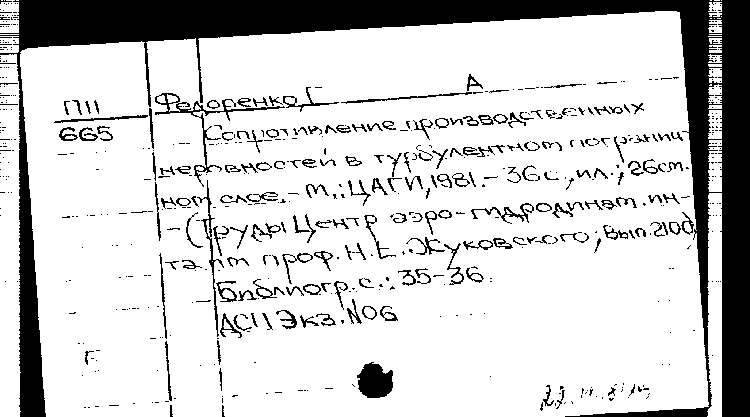 П11 Федоренко, Г А
665 Сопротивление производственных
неровностей в турбулентном погранич-
ном слое. - М.: ЦАГИ, 1981. - 36с., ил.; 26см.
- (Труды Центр аэро-гидродинам. ин-
та им проф. Н.Е. Жуковского; Вып. 2100)
Библиогр. с.: 35-36.
ДСП Экз. №06
F